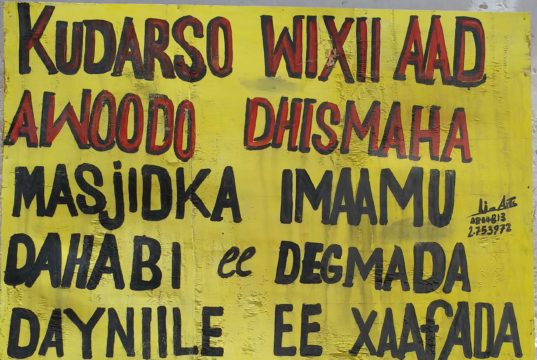 KUDARSO WIXII AAD
AWOODO DHISMAHA
MASJIDKA IMAAMU
DAHABI ee DEGMADA
DAYNIILE EE XAAFADA
2.753972